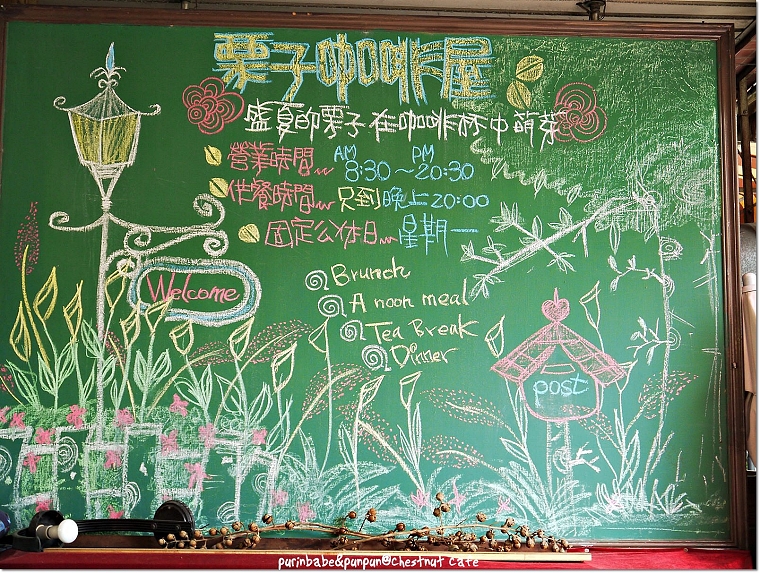 栗子咖啡屋
盛夏的栗子在咖啡杯中萌芽
營業時間~ AM 8:30~PM 20:30
供餐時間~ 只到晚上20:00
固定公休日~ 星期一
Welcome
Brunch
A noon meal
Tea Break
Dinner
post
purinbabe&punpun@Chestnut Cafe